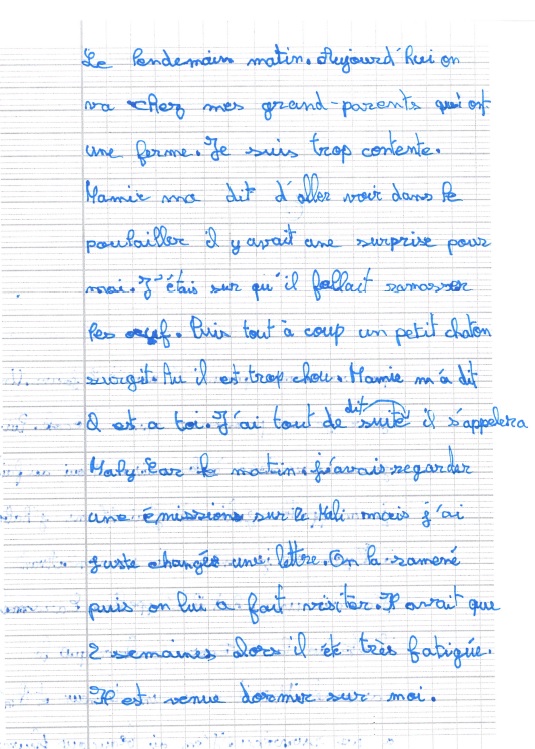 Le lendemain matin. Aujourd'hui on
va chez mes grand-parents qui ont
une ferme. Je suis trop contente.
Mamie ma dit d'aller voir dans le
poulailler il y avait une surprise pour
moi. J'étais sur qu'il fallait ramasser
les oeuf. Puis tout à coup un petit chaton
surgit. Au il est trop chou. Mamie m'a dit
Il est a toi. J'ai tout de suite dit il s'appelera
Maly Car le matin j'avais regarder
une émissions sur le Mali mais j'ai
juste changée une lettre. On la ramené
puis on lui a fait visiter. Il avait que
2 semaines alors il été très fatigué.
Il est venue dormir sur moi.